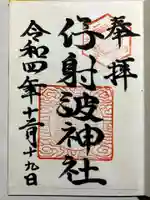 奉拝
伊射波神社
令和四年十二月十九日